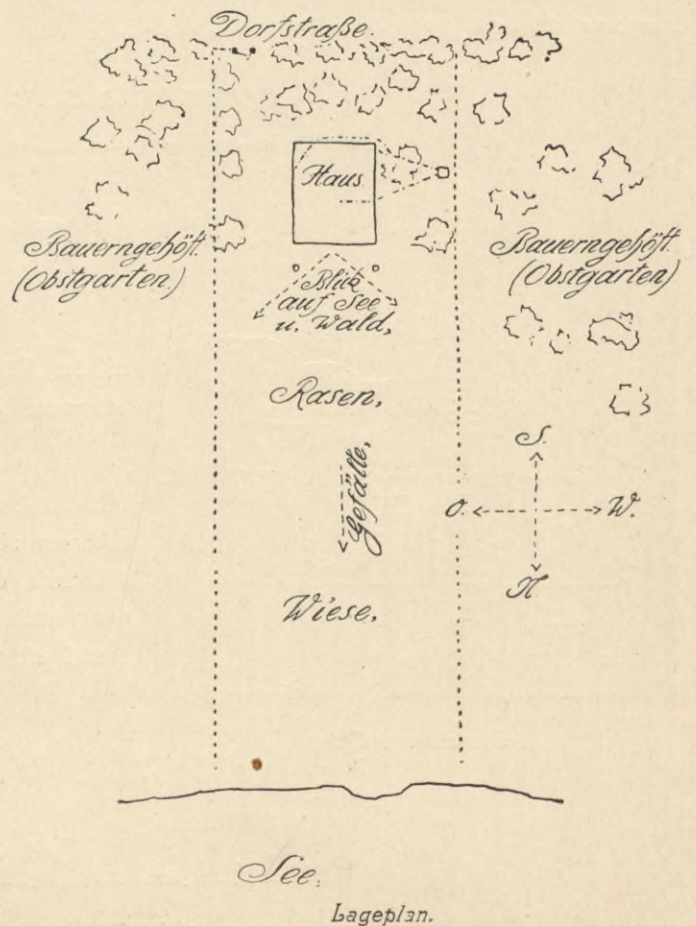 Dorfstraße.
Haus.
Bauerngehöft.
(Obstgarten.)
Bauerngehöft.
(Obstgarten)
Blick
auf See
u. Wald,
Rasen,
S.
Gefälle,
O.
W.
N
Wiese,
See.
Lageplan.